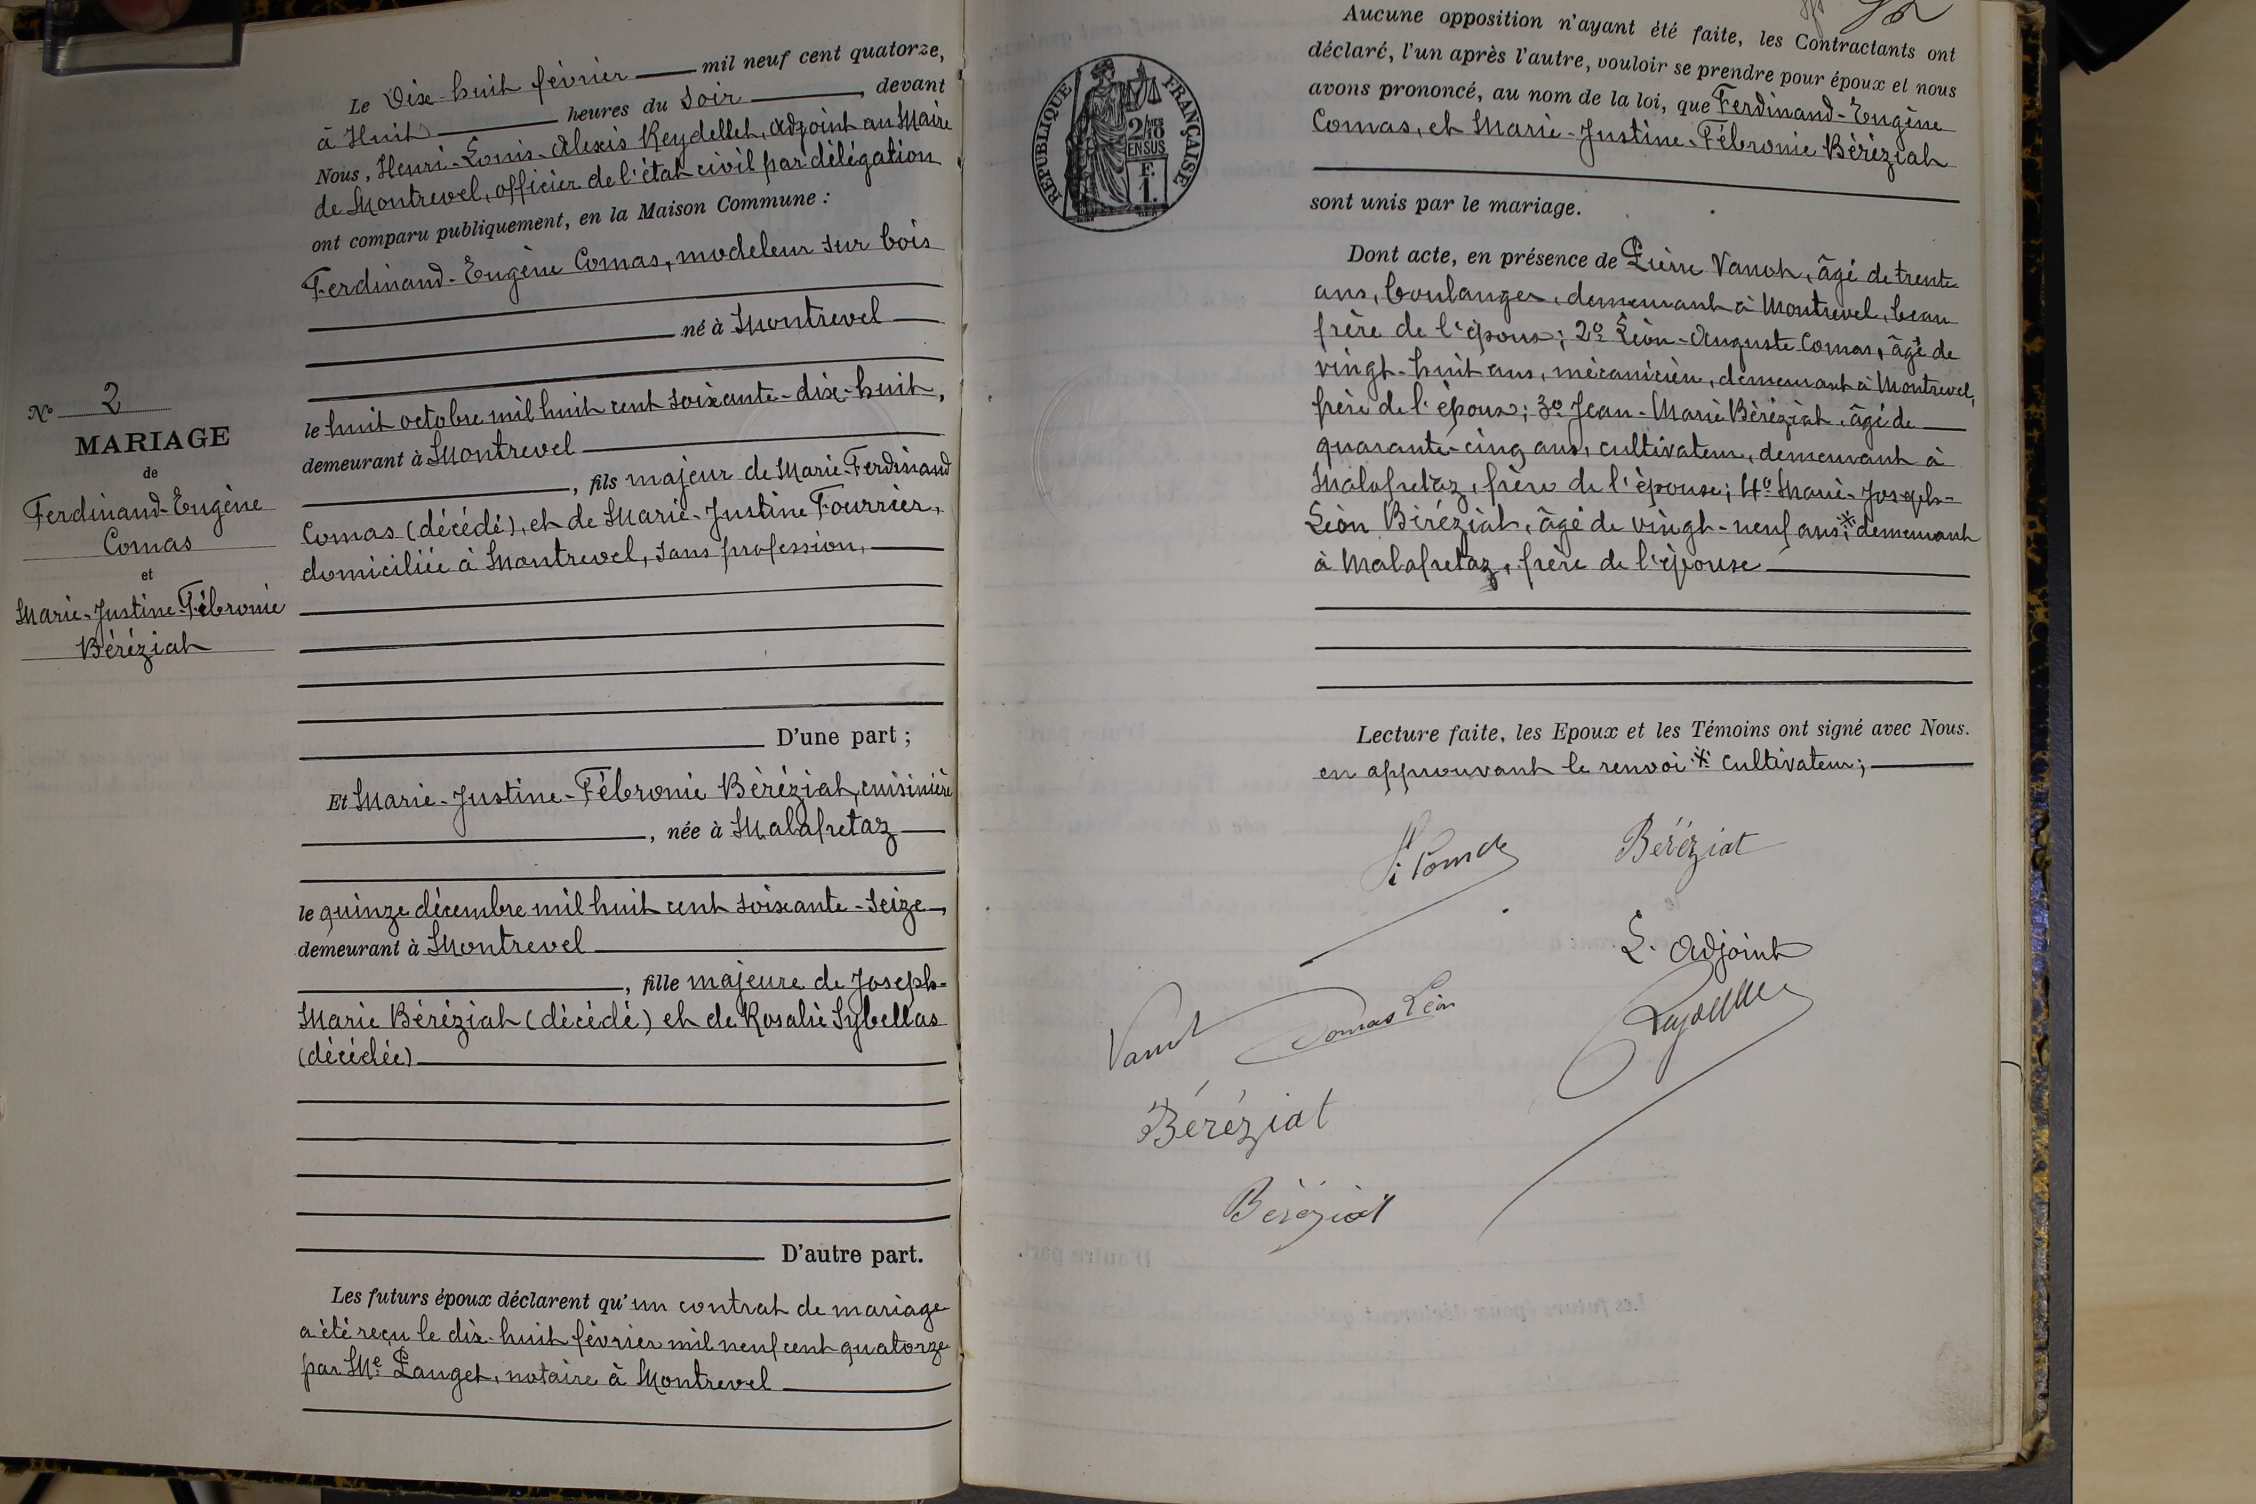 Nº 2
MARIAGE
de
Ferdinand-Eugène
Comas
et
Marie-Justine-Fébronie
Béréziat
Le Dix-huit février mil neuf cent quatorze,
à Huit heures du soir, devant
Nous, Henri-Louis-Alexis Reydellet, adjoint au Maire
de Montrevel, officier de l'état civil par délégation
ont comparu publiquement, en la Maison Commune :
Ferdinand-Eugène Comas, modeleur sur bois
né à Montrevel
le huit octobre mil huit cent soixante-dix-huit,
demeurant à Montrevel
, fils majeur de Marie-Ferdinand
Comas (décédé), et de Marie-Justine Fourrier,
domiciliée à Montrevel, sans profession,
D'une part ;
Et Marie-Justine-Fébronie Béréziat, cuisinière
, née à Malafretaz
le quinze décembre mil huit cent soixante-seize,
demeurant à Montrevel
, fille majeure de Joseph-
Marie Béréziat (décédé) et de Rosalie Sybellas
(décédée)
D'autre part.
Les futurs époux déclarent qu'un contrat de mariage
a été reçu le dix-huit février mil neuf cent quatorze
par Me Pauget, notaire à Montrevel
RÉPUBLIQUE FRANÇAISE
2/10
EN SUS
F.
1.
Aucune opposition n'ayant été faite, les Contractants ont
déclaré, l'un après l'autre, vouloir se prendre pour époux et nous
avons prononcé, au nom de la loi, que Ferdinand-Eugène
Comas, et Marie-Justine-Fébronie Béréziat
sont unis par le mariage.
Dont acte, en présence de Pierre Vanot, âgé de trente
ans, boulanger, demeurant à Montrevel, beau
frère de l'époux; 2º Léon-Auguste Comas, âgé de
vingt-huit ans, mécanicien, demeurant à Montrevel,
frère de l'époux; 3º Jean-Marie Béréziat, âgé de
quarante-cinq ans, cultivateur, demeurant à
Malafretaz, frère de l'épouse; 4º Marie-Joseph-
Léon Béréziat, âgé de vingt-neuf ans,※ demeurant
à Malafretaz, frère de l'épouse
Lecture faite, les Epoux et les Témoins ont signé avec Nous.
en approuvant le renvoi ※ cultivateur;
Béréziat
L. adjoint
Vanot
Comas Léon
Reydellet
Béréziat
Béréziat